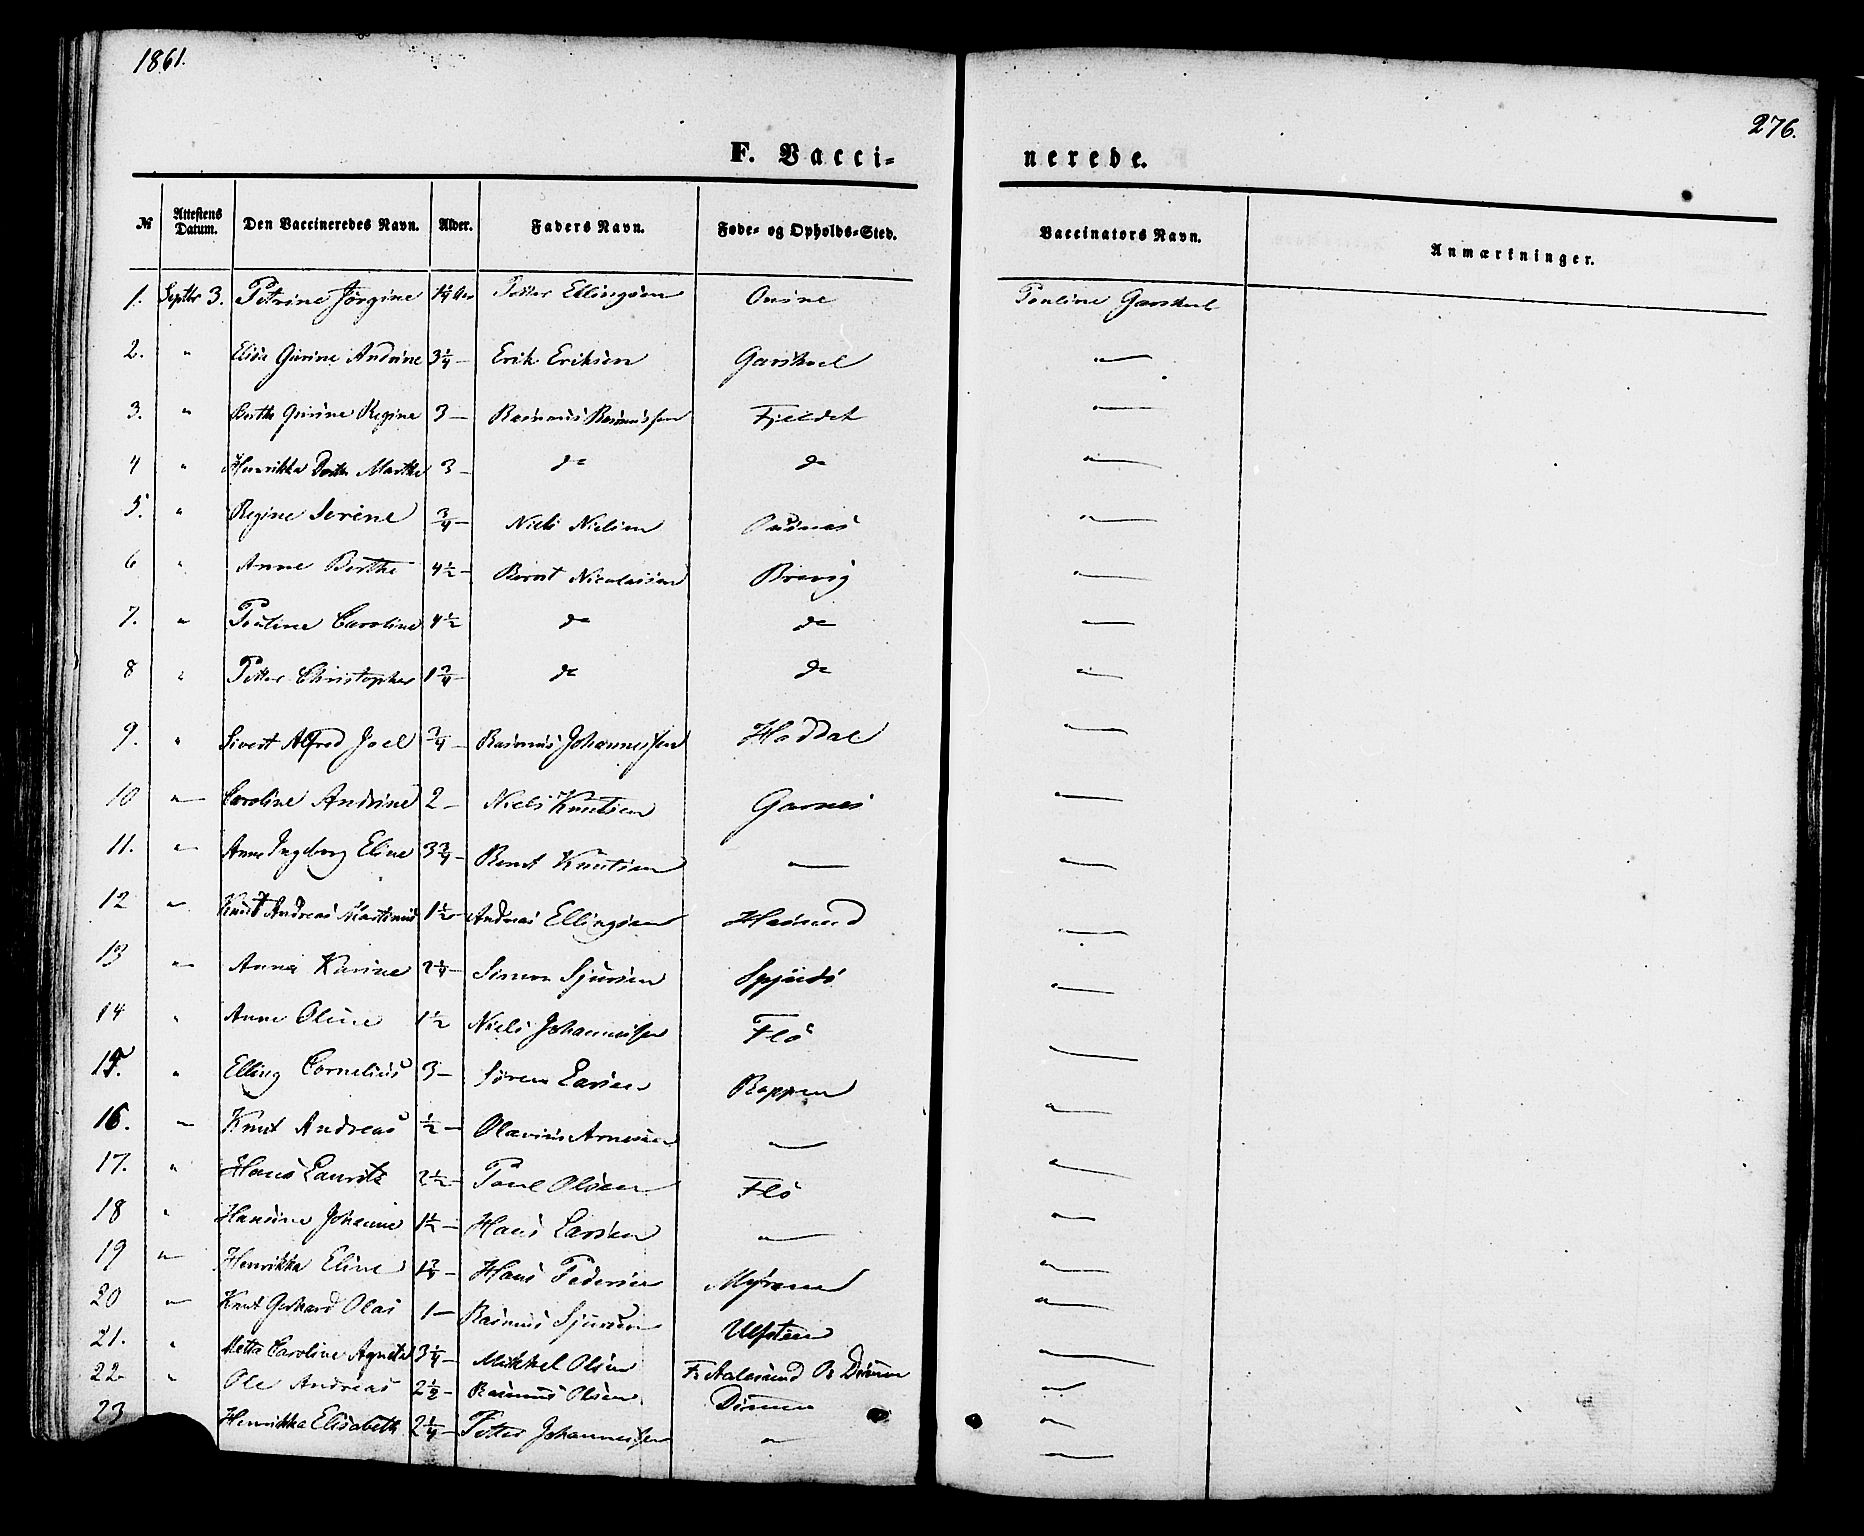 1861.
276.
F. Vacci= nerede.
№ Attestens Datum. Den Vaccineredes Navn. Alder. Faders Navn. Føde- og Opholds-Sted. Vaccinators Navn. Anmærkninger.
1. Septbr 3. Petrine Jørgine 1¼ Petter Ellingsen Pauline Garshoel
2. " Elisa Gurine Andrine 3¼ – Erik Eriksen Garshoel "
3. " Berthe Gurine Regine 3 – Rasmus Rasmussen Fjeldet "
4 " Henrikka Dorthe Marthe 3 – do do "
5. " Regine Serine ¾ – Niels Nielsen "
6 " Anne Berthe 4½ – Bernt Nicolaisen Brevig "
7. " Pauline Caroline 4½ do do "
8 " Petter Christopher 1¾ – do do "
9. " Sivert Alfred Joel ¾ – Rasmus Johannessen Haddal "
10 " Caroline Andrine 2 – Niels Knutsen Garnes "
11. " Anne Ingeborg Eline 3¾ – Bernt Knutsen " "
12 " Knut Andreas Martinus 1½ – Andreas Ellingsen Hasund "
13 " Anna Karine 2¼ – Simon Sjursen "
14 " Anne Oline 1½ Niels Johannessen Flø "
15. " Elling Cornelius 3 – Søren Larsen Røppen "
16. " Knut Andreas ½ – Olavius Arnesen " "
17. " Hans Lauritz 2½ – Paul Olsen Flø "
18 " Hansine Johanne 1½ – Hans Larsen " "
19 " Henrikka Eline 1¾ – Hans Pedersen Myrene "
20 " Knut Gerhard Olai 1 – Rasmus Sjursen Ulfsten "
21. " Mette Caroline Agnete 3¼ – Mikkel Olsen F: Aalesund O: Dimnen "
22 " Ole Andreas 2½ – Rasmus Olsen Dimnen "
23 Henrikka Elisabeth 2¼ – Petter Johannessen " "